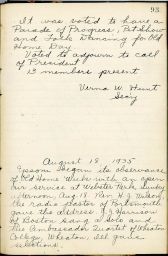 93
It was voted to have a
Parade of Progress, Pet Show
and Folk Dancing for Old
Home Day.
Voted to adjourn to call
of President
13 members present
Verna W. Hunt
Sec'y
August 18, 1935
Epsom began its observance
of Old Home Week with an open
air service at Webster Park Sunday
afternoon, Aug. 18. Rev. W. J. Wilson,
the radio pastor of Portsmouth
gave the address. J. J. Harrison
of Boston sang a solo and
the Ambassador Quartet of Wheaton
College, Wheaton, Ill. gave
selections.